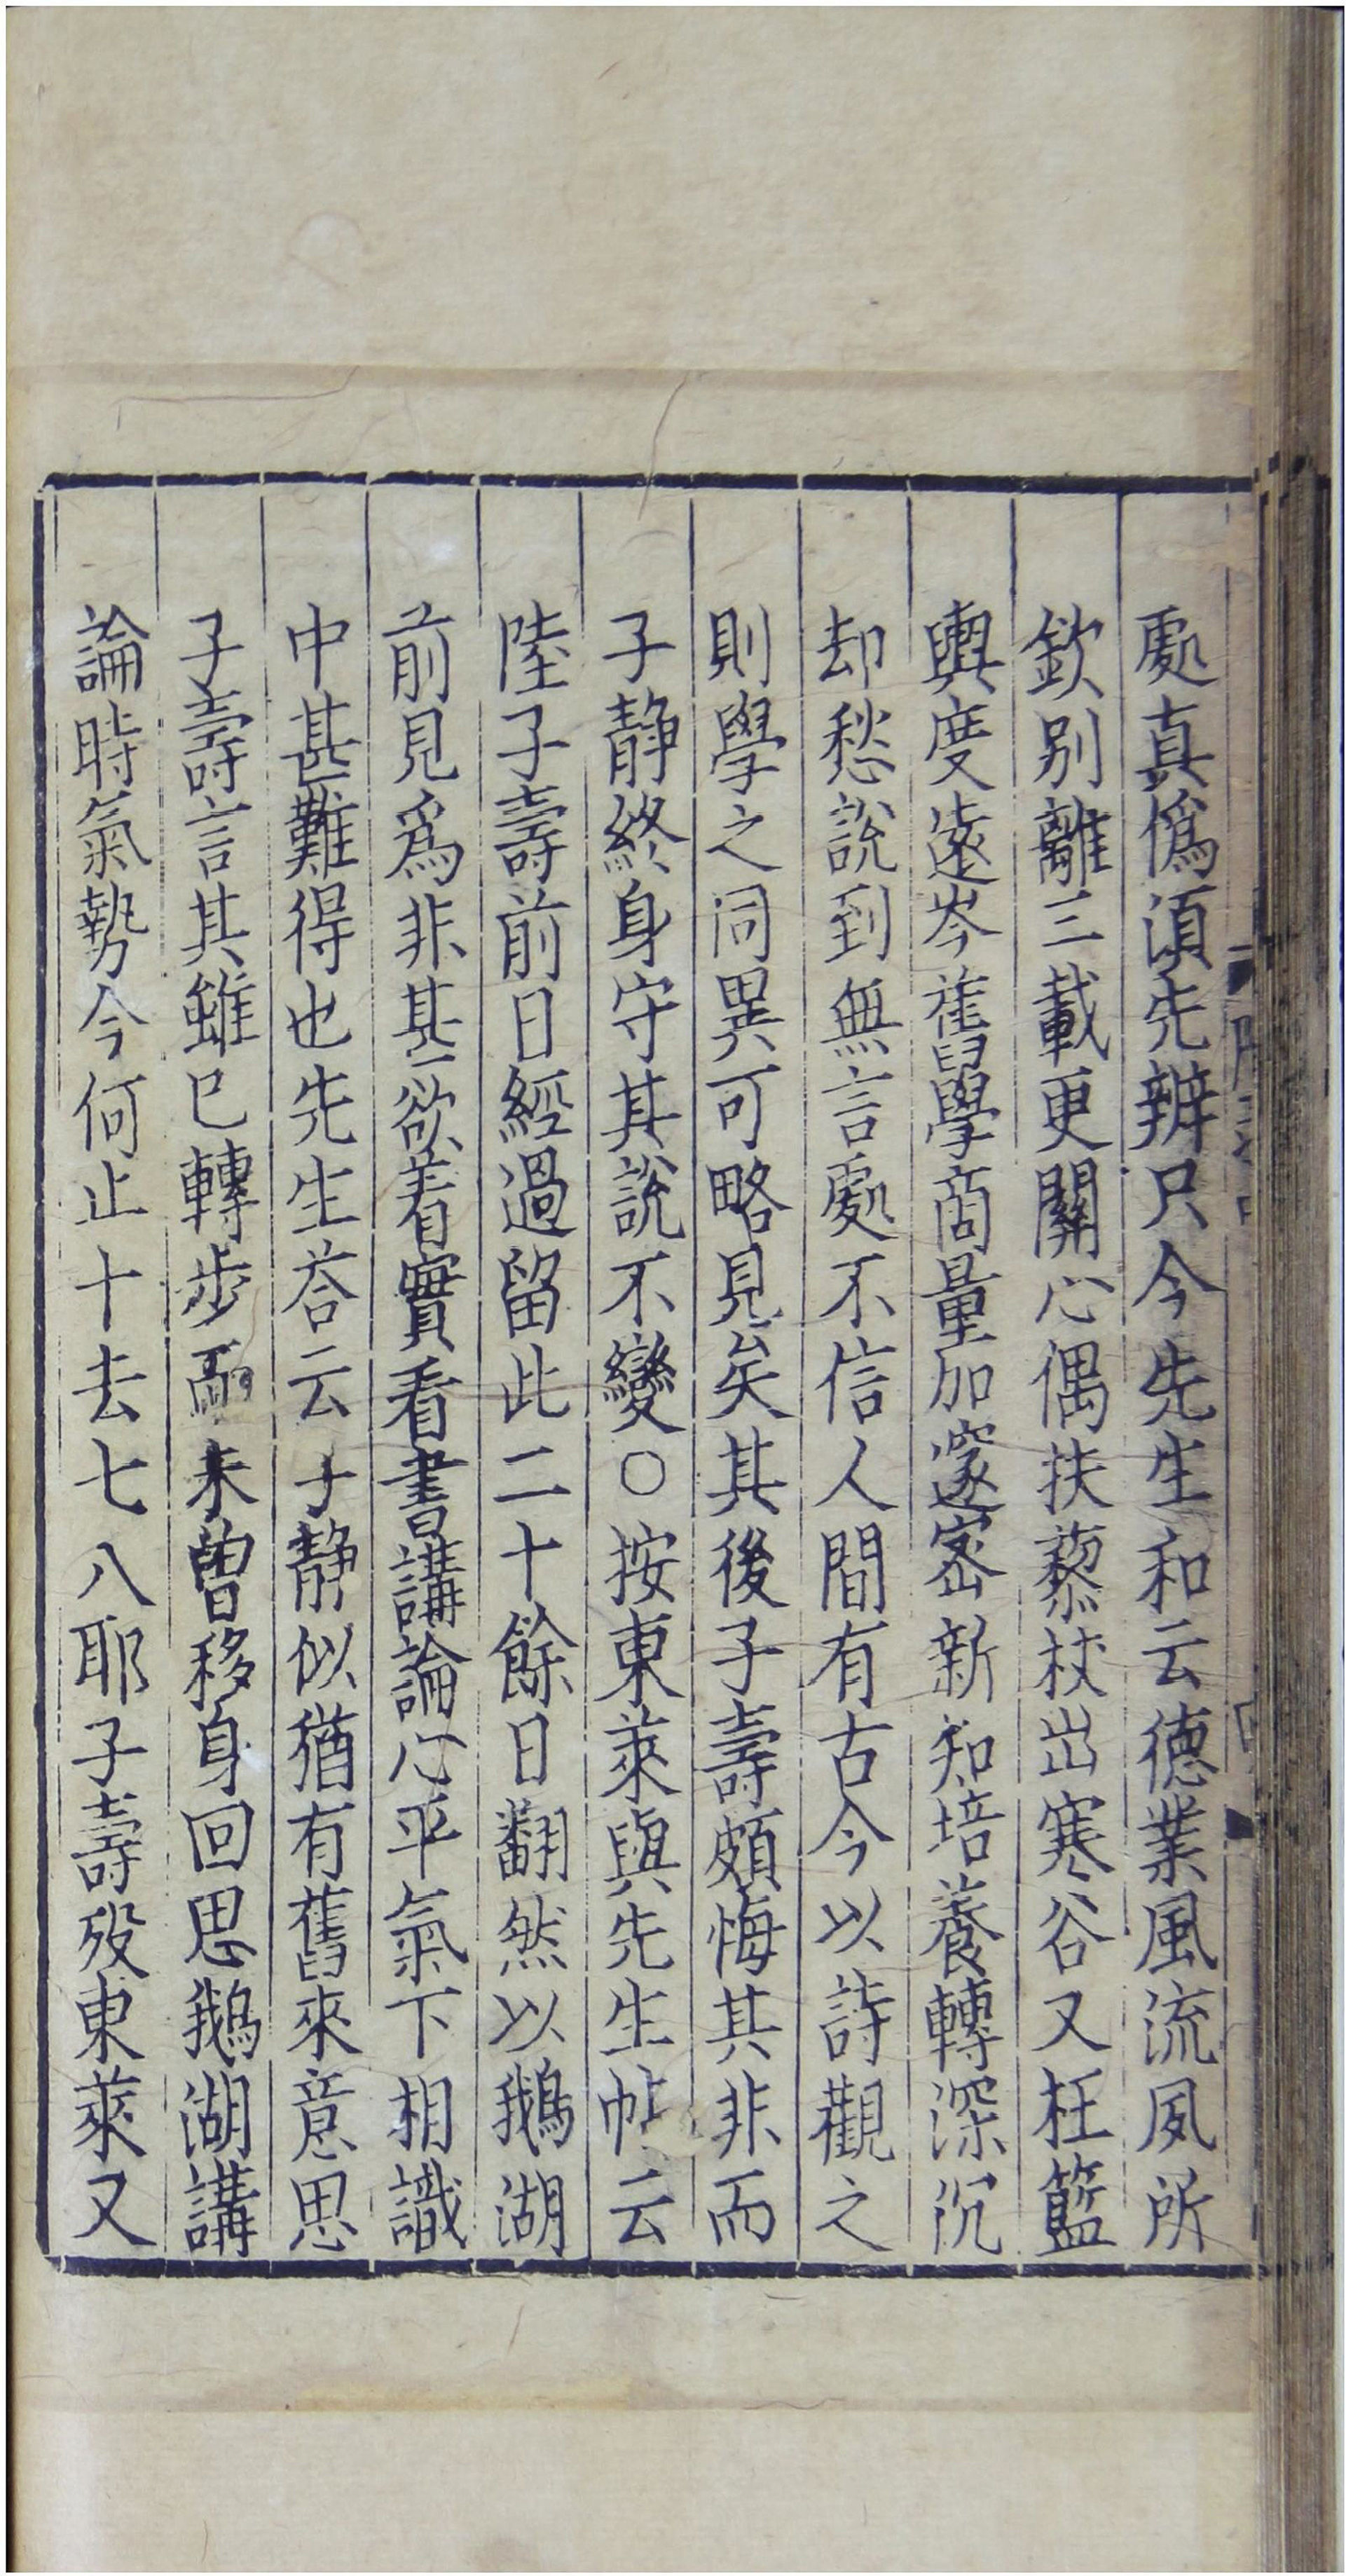 處真僞湏先辨只今先生和云德業風流夙所
欽別離三載更關心偶扶藜杖出寒谷又枉籃
輿度遠岑舊學商量加邃密新知培養轉深沉
却愁說到無言處不信人間有古今以詩觀之
則學之同異可略見矣其後子壽頗悔其非而
子静終身守其說不變○按東萊與先生帖云
陸子壽前日經過留此二十餘日翻然以鵝湖
前見爲非甚欲着實看書講論心平氣下相識
中甚難得也先生荅云子静似猶有舊來意思
子壽言其雖已轉步而未曾移身回思鵝湖講
論時氣勢今何止十去七八耶子壽歿東萊又